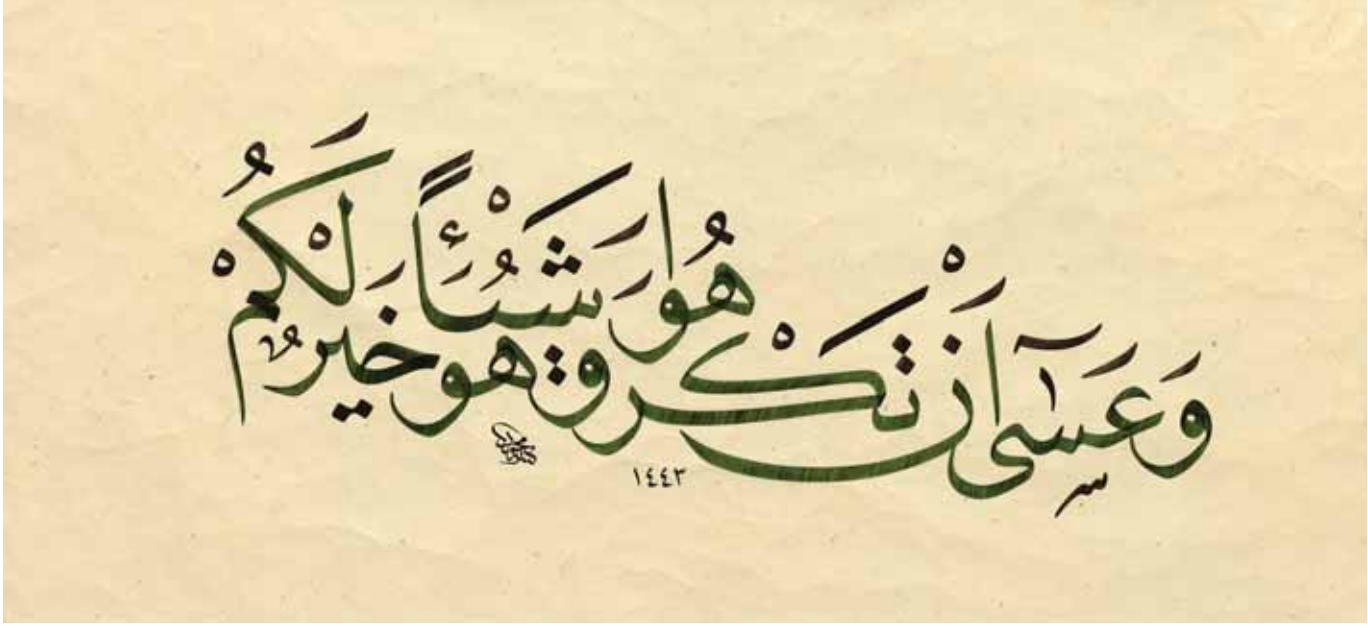 وَعَسَىٰ أَنْ تَكْرَهُوا شَيْئًا وَهُوَ خَيْرٌ لَكُمْ
١٤٤٣